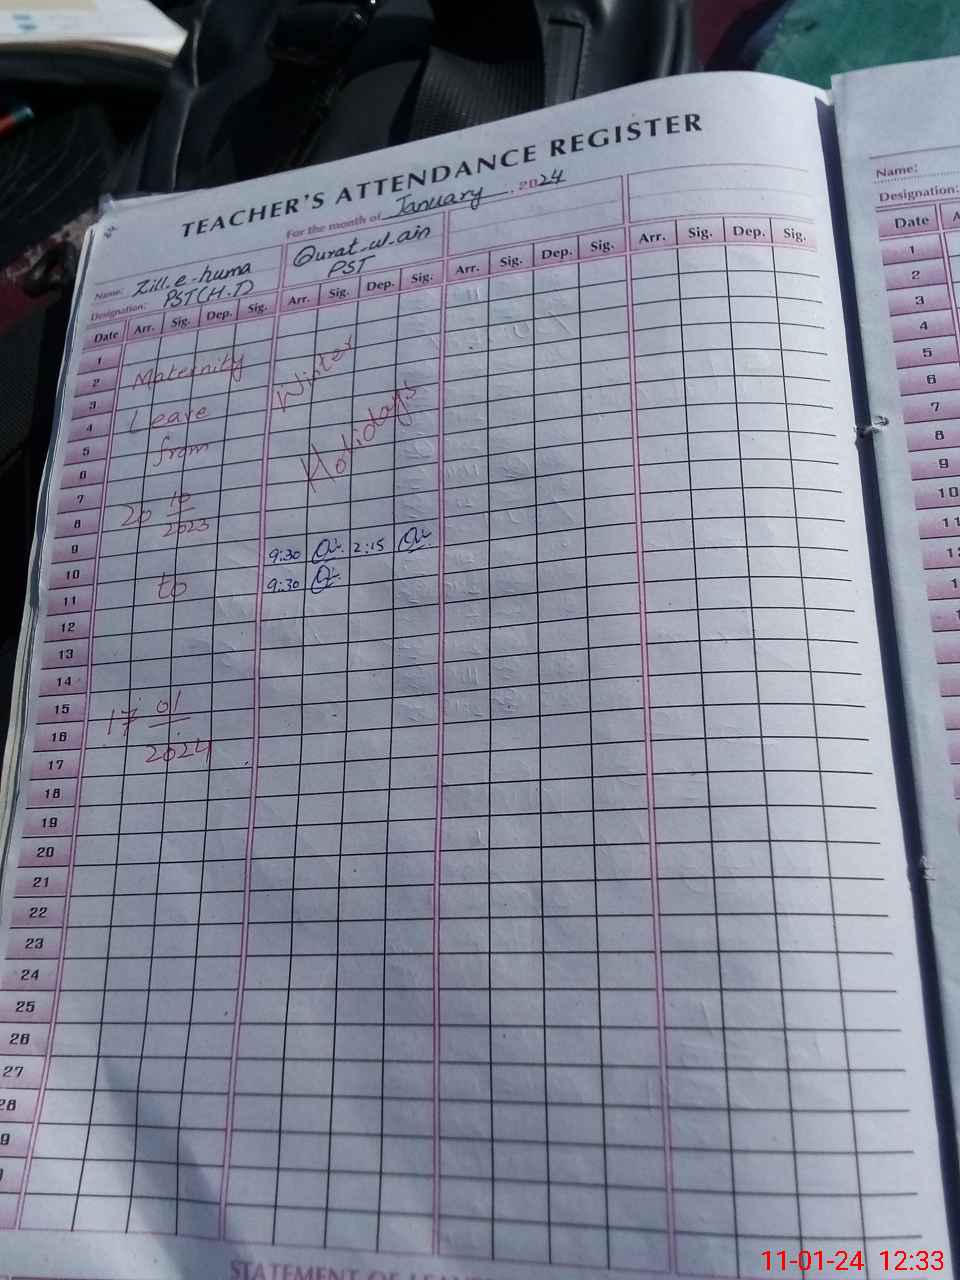 TEACHER'S ATTENDANCE REGISTER
For the month of January, 2024
Name: Zill.e-huma Qurat-ul-ain
Designation: PST(H.T) PST
Date Arr. Sig. Dep. Sig. Arr. Sig. Dep. Sig. Arr. Sig. Dep. Sig. Arr. Sig. Dep. Sig.
1
2 Maternity Winter
3
4 Leave
5 from Holidays
6
7
8 20 10/2023
9 9:30 2:15
10 to 9:30
11
12
13
14
15
16 17 01/2024
17
18
19
20
21
22
23
24
25
26
27
28
9
STATEMENT OF
Name:
Designation:
Date
1
2
3
4
5
6
7
8
9
10
11
11-01-24 12:33